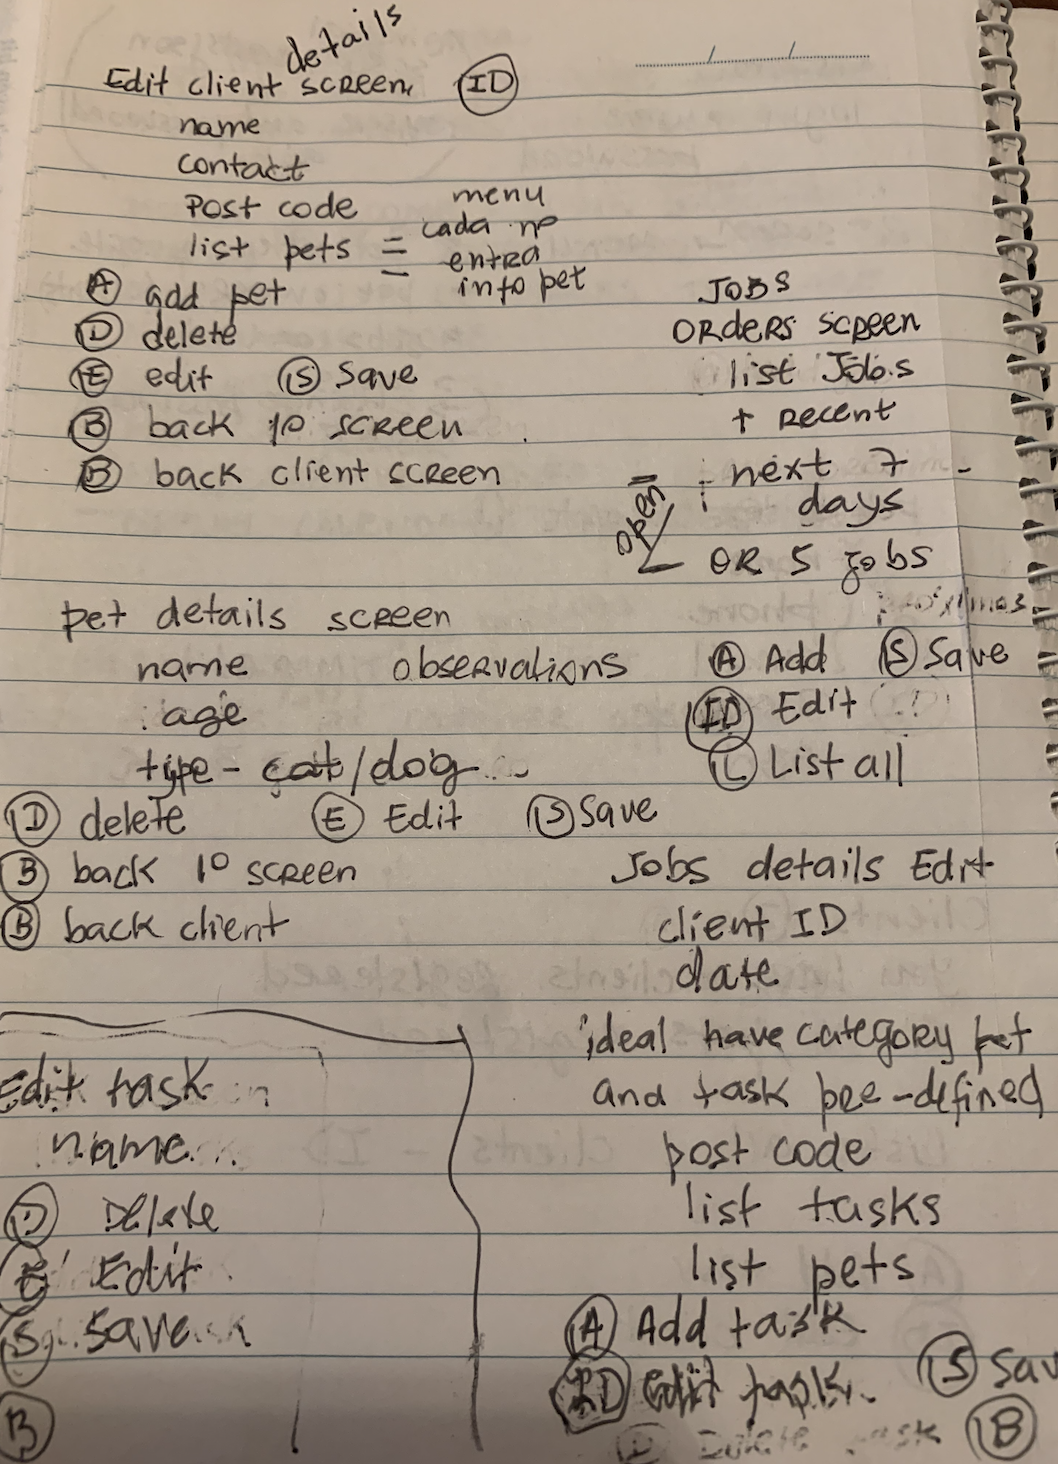 details
Edit client screen (ID)
name
contact
Post code
list pets = menu
cada nº
entra
into pet
(A) add pet
(D) delete
(E) edit (S) Save
(B) back 1º screen
(B) back client screen
JOBS
ORDERS SCREEN
list Jobs
+ recent
next 7
days
open
OR 5 jobs
próximos
(A) Add (S) Save
(ID) Edit
(L) List all
pet details screen
name observations
age
type - cat/dog
(D) delete (E) Edit (S) Save
(B) back 1º screen
(B) back client
Jobs details Edit
client ID
date
ideal have category pet
and task pre-defined
post code
list tasks
list pets
(A) Add task
(ID) edit task (S) Sav
(D) Delete task (B)
Edit task
name
(D) Delete
(E) Edit
(S) Save
(B)